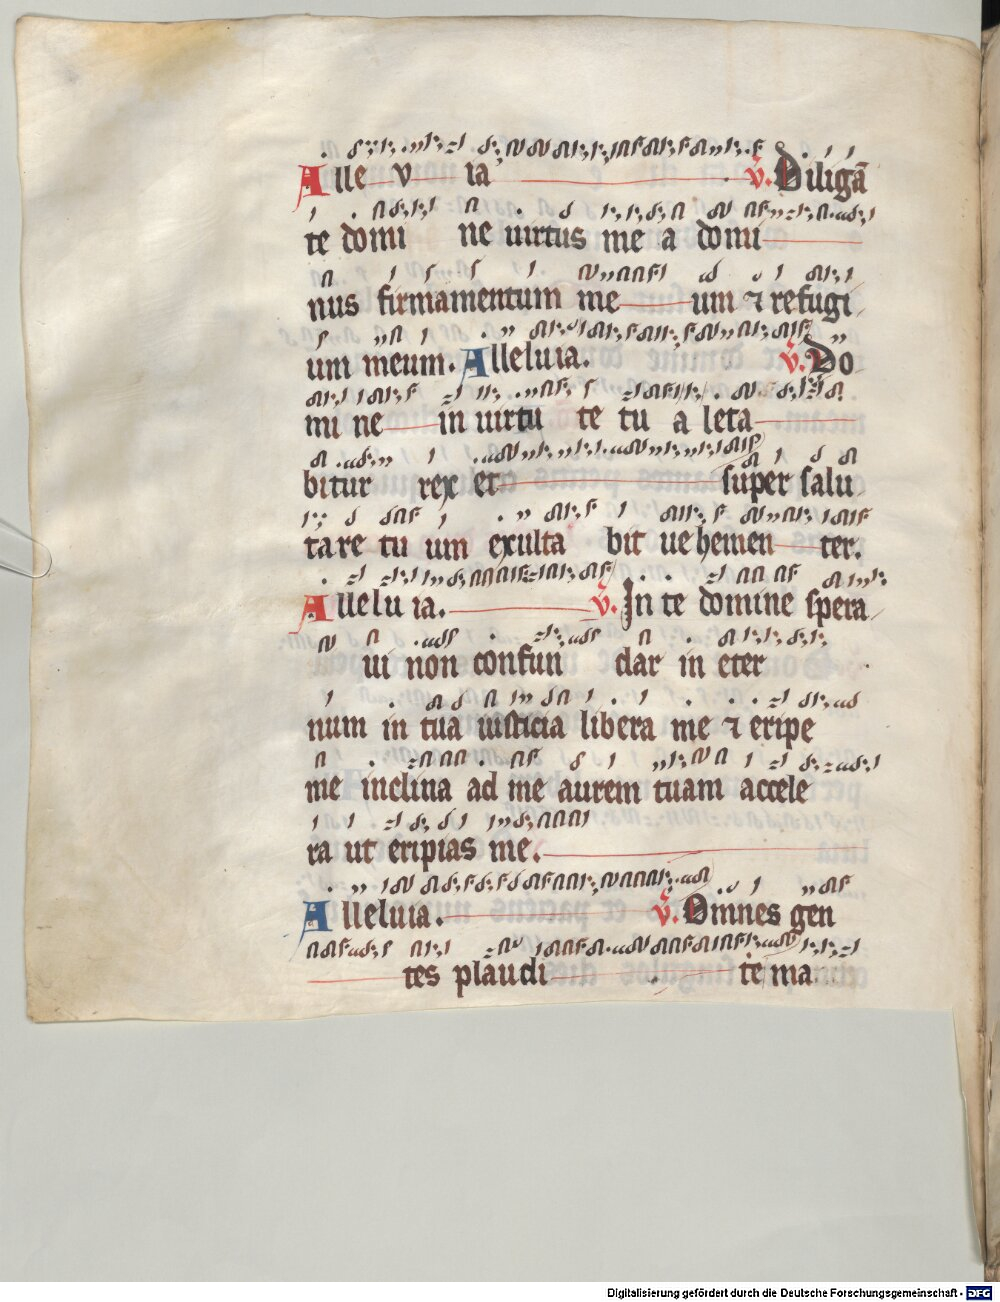 Alle v ia v. Diligā
te domi ne uirtus me a domi
nus firmamentum me um ⁊ refugi
um meum. Alleluia. v. Do
mi ne in uirtu te tu a leta
bitur rex et super salu
tare tu um exulta bit uehemen ter.
Allelu ia. v. In te domine spera
ui non confun dar in eter
num in tua iusticia libera me ⁊ eripe
me inclina ad me aurem tuam accele
ra ut eripias me.
Alleluia. v. Omnes gen
tes plaudi te ma
Digitalisierung gefördert durch die Deutsche Forschungsgemeinschaft - DFG